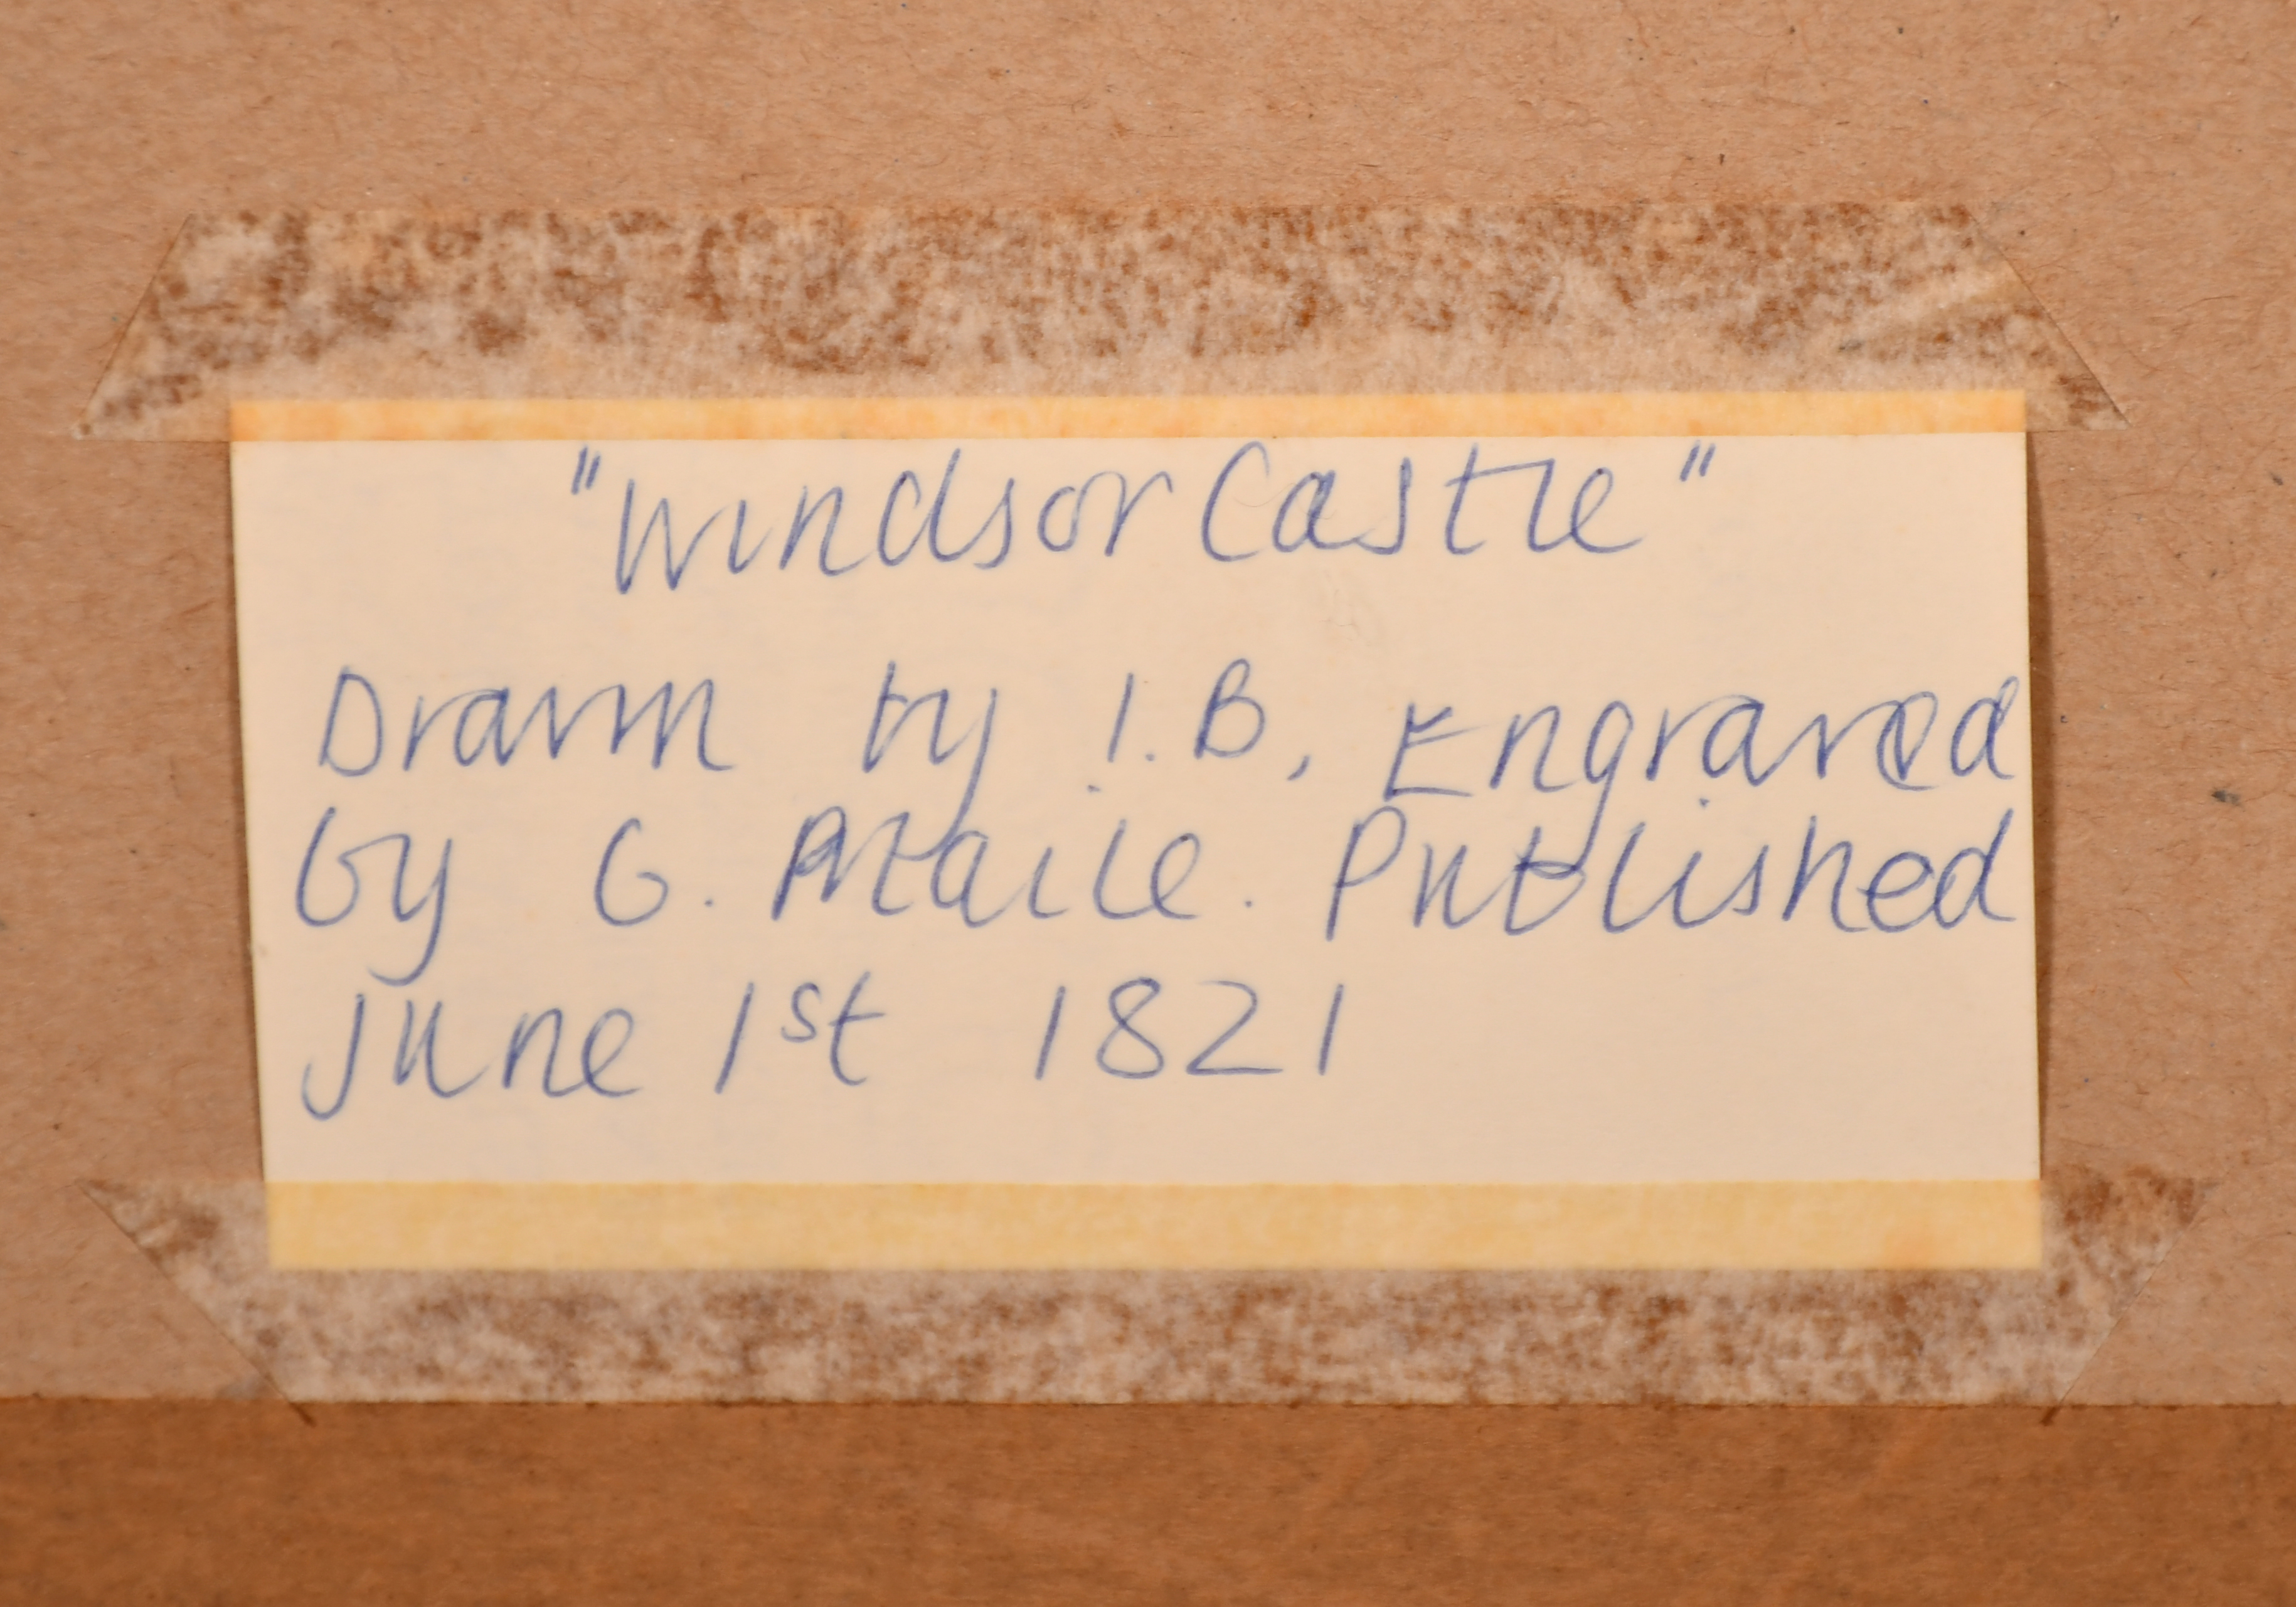 "Windsor Castle"
Drawn by I.B, Engraved
by G. Maile. Published
June 1st 1821